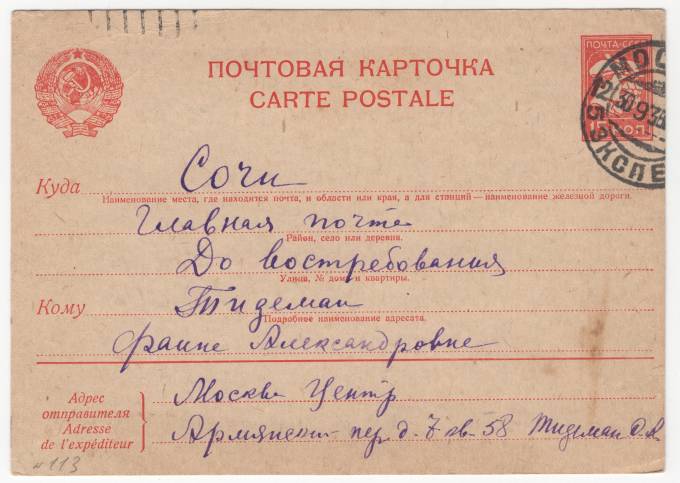 ПОЧТОВАЯ КАРТОЧКА
CARTE POSTALE
ПОЧТА СССР
МОС
12 30 9 3
5 ЭКСПЕ
Куда Сочи
Наименование места, где находится почта, и области или края, а для станций—наименование железной дороги.
Главная почте
Район, село или деревня.
До востребования
Улица, № дома и квартиры.
Кому Тидеман
Подробное наименование адресата.
Фаине Александровне
Адрес
отправителя
Adresse
de l'expéditeur
Москва Центр
Армянский пер. д. 7 кв. 58 Тидеман
н 113